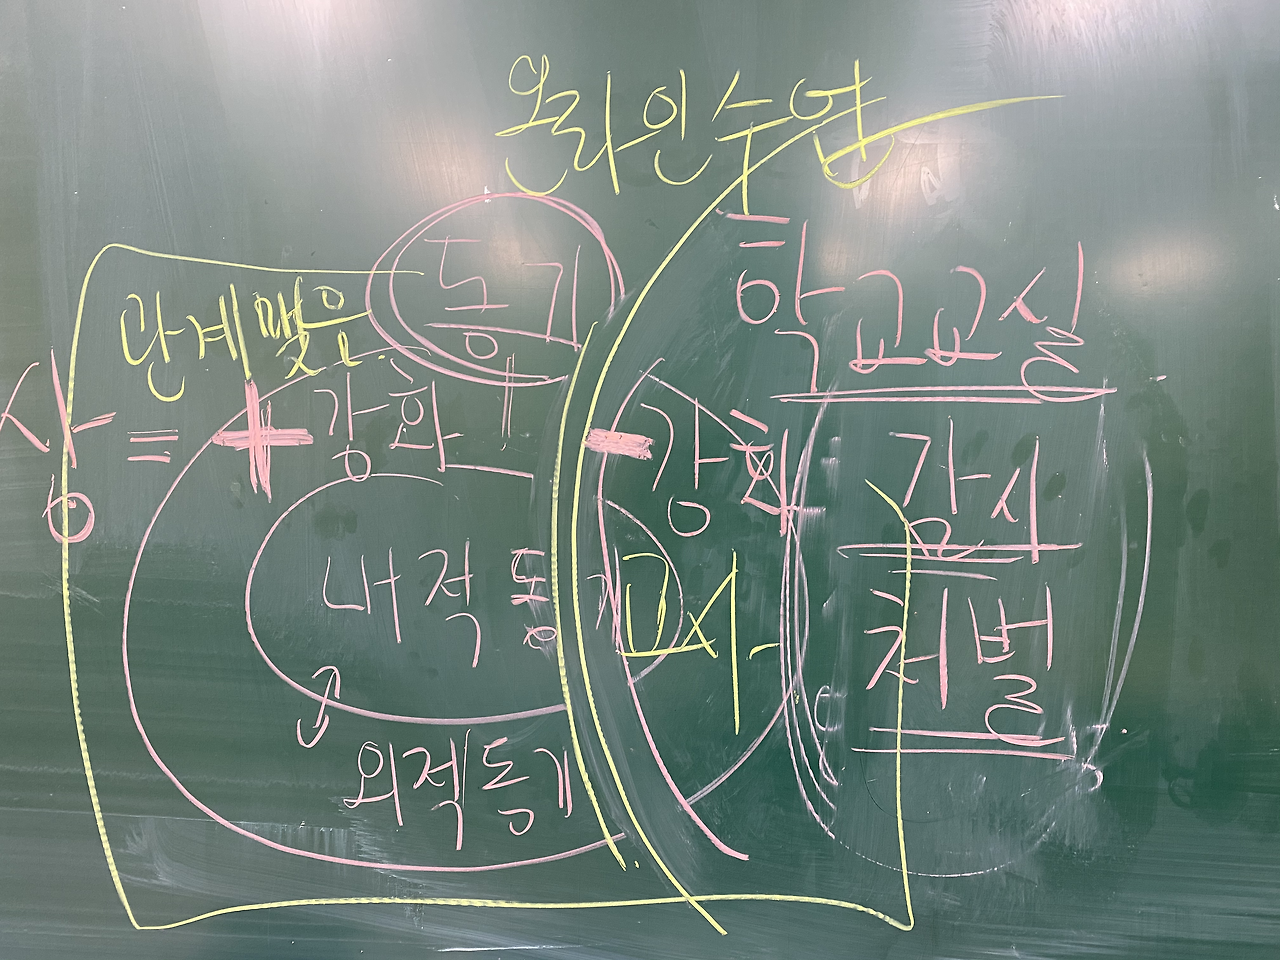 온라인수업
동기
학교교실
단계맞은
상 = + 강화
- 강화
감시
내적동기
교사
처벌
외적동기